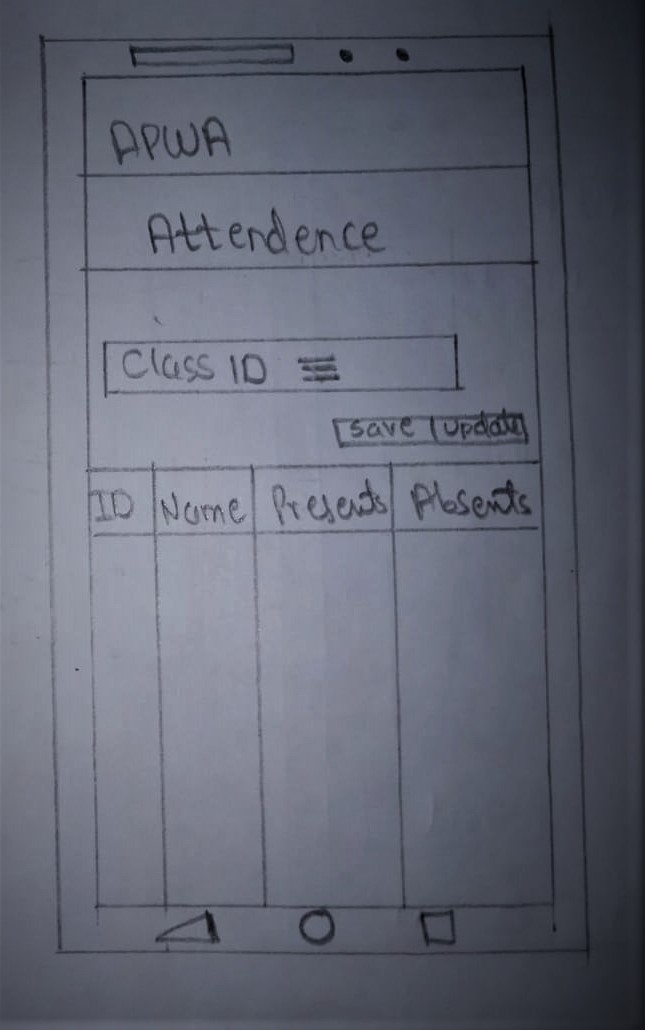 APWA
Attendence
Class ID
save update
ID Name Presents Absents